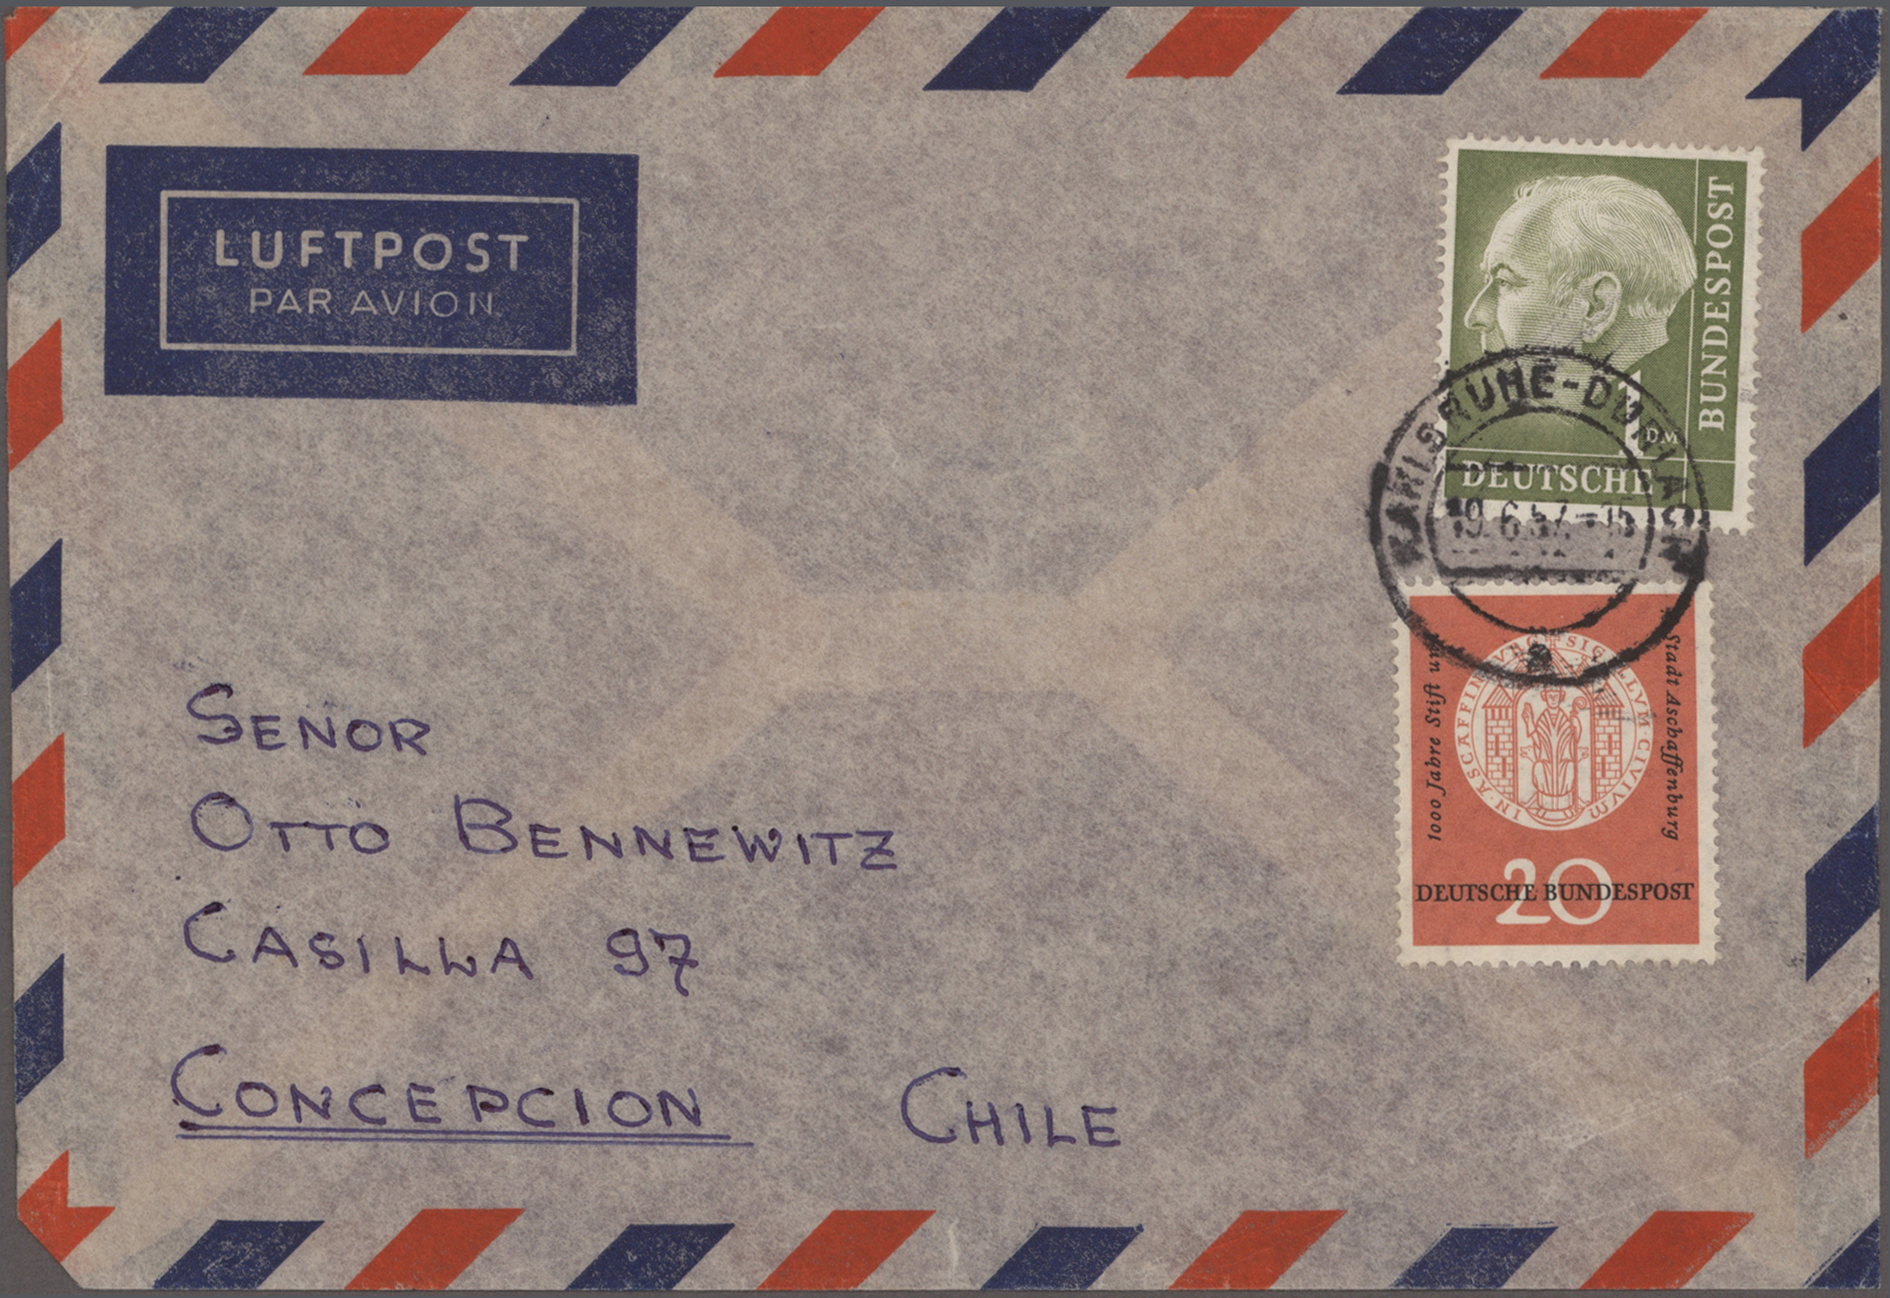 LUFTPOST
PAR AVION
DEUTSCHE
BUNDESPOST
1
DM
KARLSRUHE-DURLACH
19.6.57.-15
a
1000 Jahre Stift und
Stadt Aschaffenburg
SIGILLVM·CIVIVM
IN·ASCAFFINBVRG
20
DEUTSCHE BUNDESPOST
SENOR
OTTO BENNEWITZ
CASILLA 97
CONCEPCION CHILE